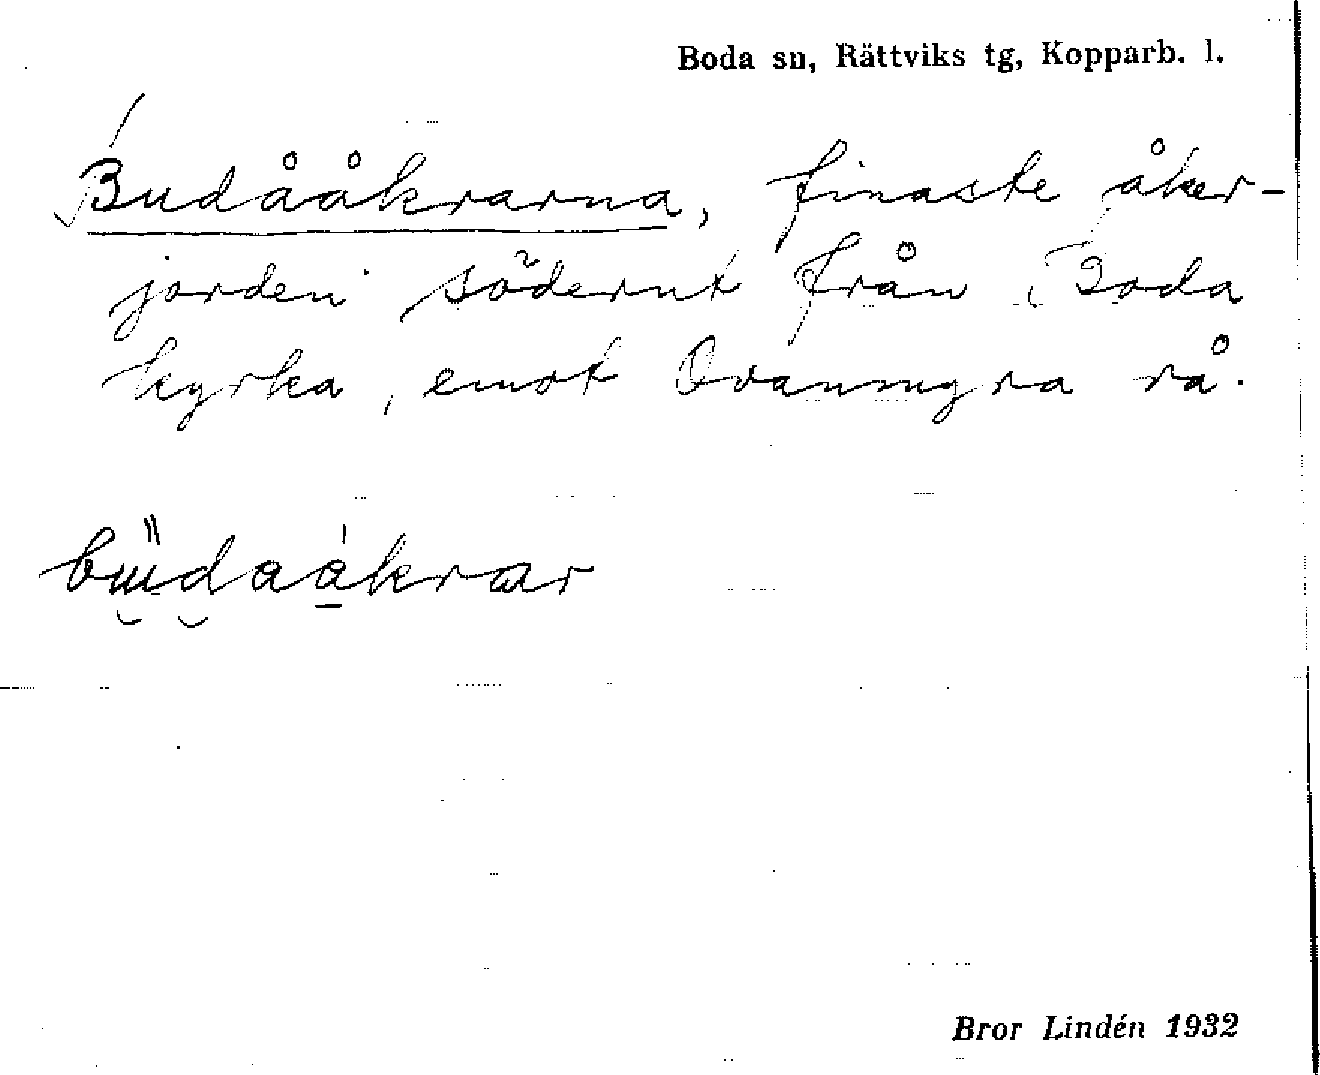 Boda sn, Rättviks tg, Kopparb. l.
Budååkrarna, finaste åker-
jorden södernt från Boda
kyrka, emot Ovanmyra rå.
büdaákrar
Bror Lindén 1932